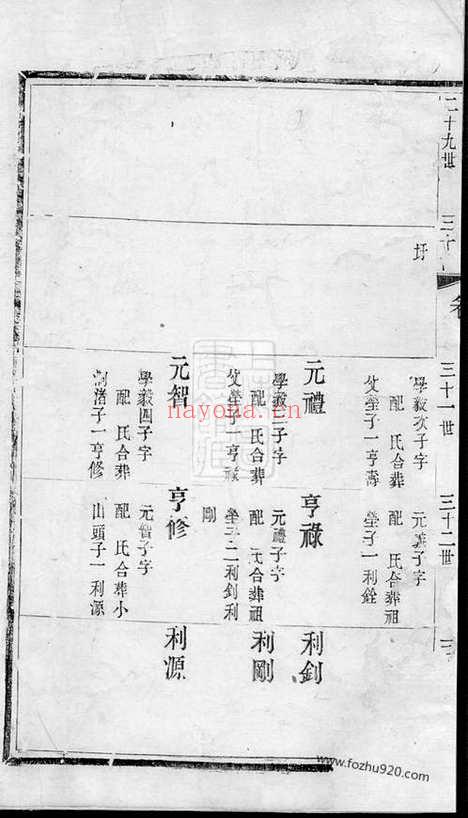 二十九世
三十
圩
三十一世
三十二世
學毅次子字
配　氏合葬
父塋子一亨壽
子字
配　氏合葬祖
塋子一利銓
元禮
學毅三子字
配　氏合葬
父塋子一亨祿
亨祿
元禮子字
配　氏合葬祖
塋子二利釗利
剛
利釗
利剛
元智
學毅四子字
配　氏合葬
子一亨修
亨修
元智子字
配　氏合葬小
山頭子一利源
利源
hayona.com
www.fozhu920.com